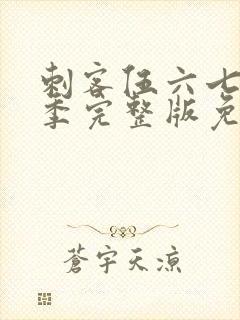 刺客伍六七
季完整版免
蒼宇天涼